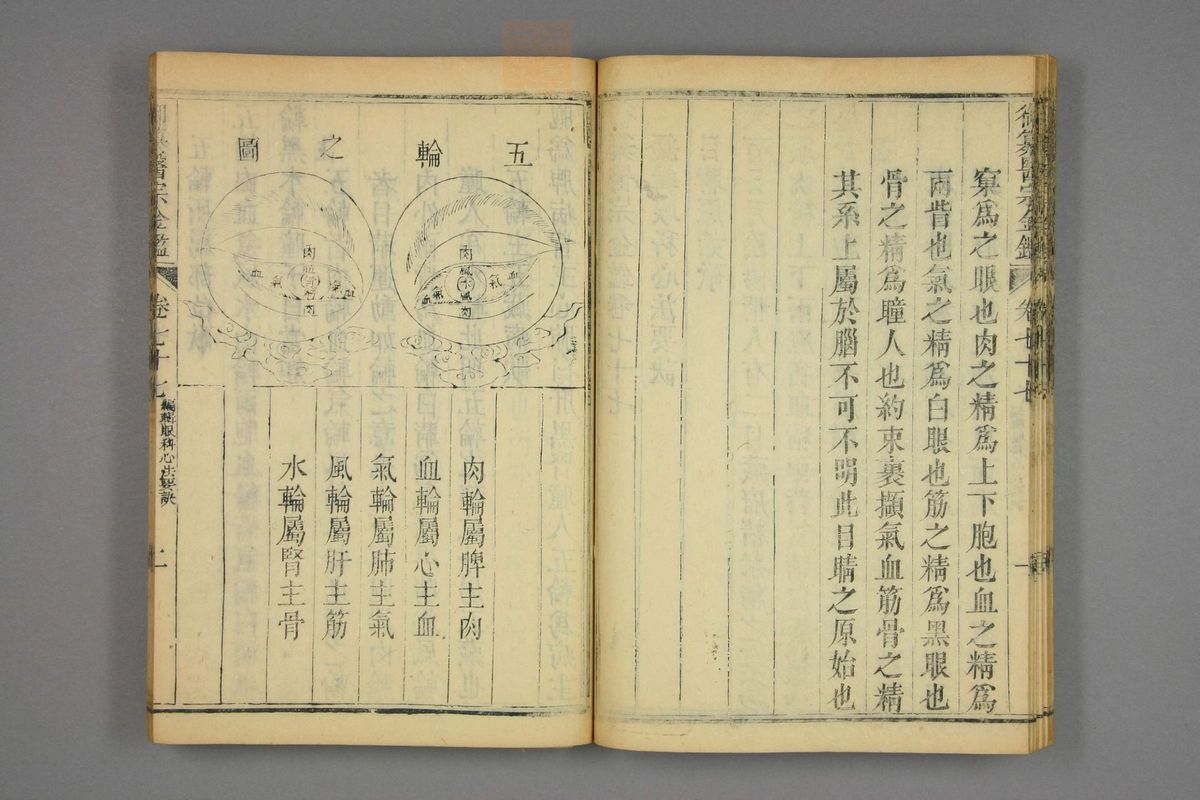 窠爲之眼也肉之精爲上下胞也血之精爲
兩眥也氣之精爲白眼也筋之精爲黑眼也
骨之精爲瞳人也約束裹擷氣血筋骨之精
其系上屬於腦不可不明此目睛之原始也
醫宗金鑑
卷七十七
一
五輪之圖
肉
血
氣
風
水
風
氣
血
肉
肉
血
氣
風
骨
肉
肉輪屬脾主肉
血輪屬心主血
氣輪屬肺主氣
風輪屬肝主筋
水輪屬腎主骨
醫宗金鑑
卷七十七
編輯眼科心法要訣
二